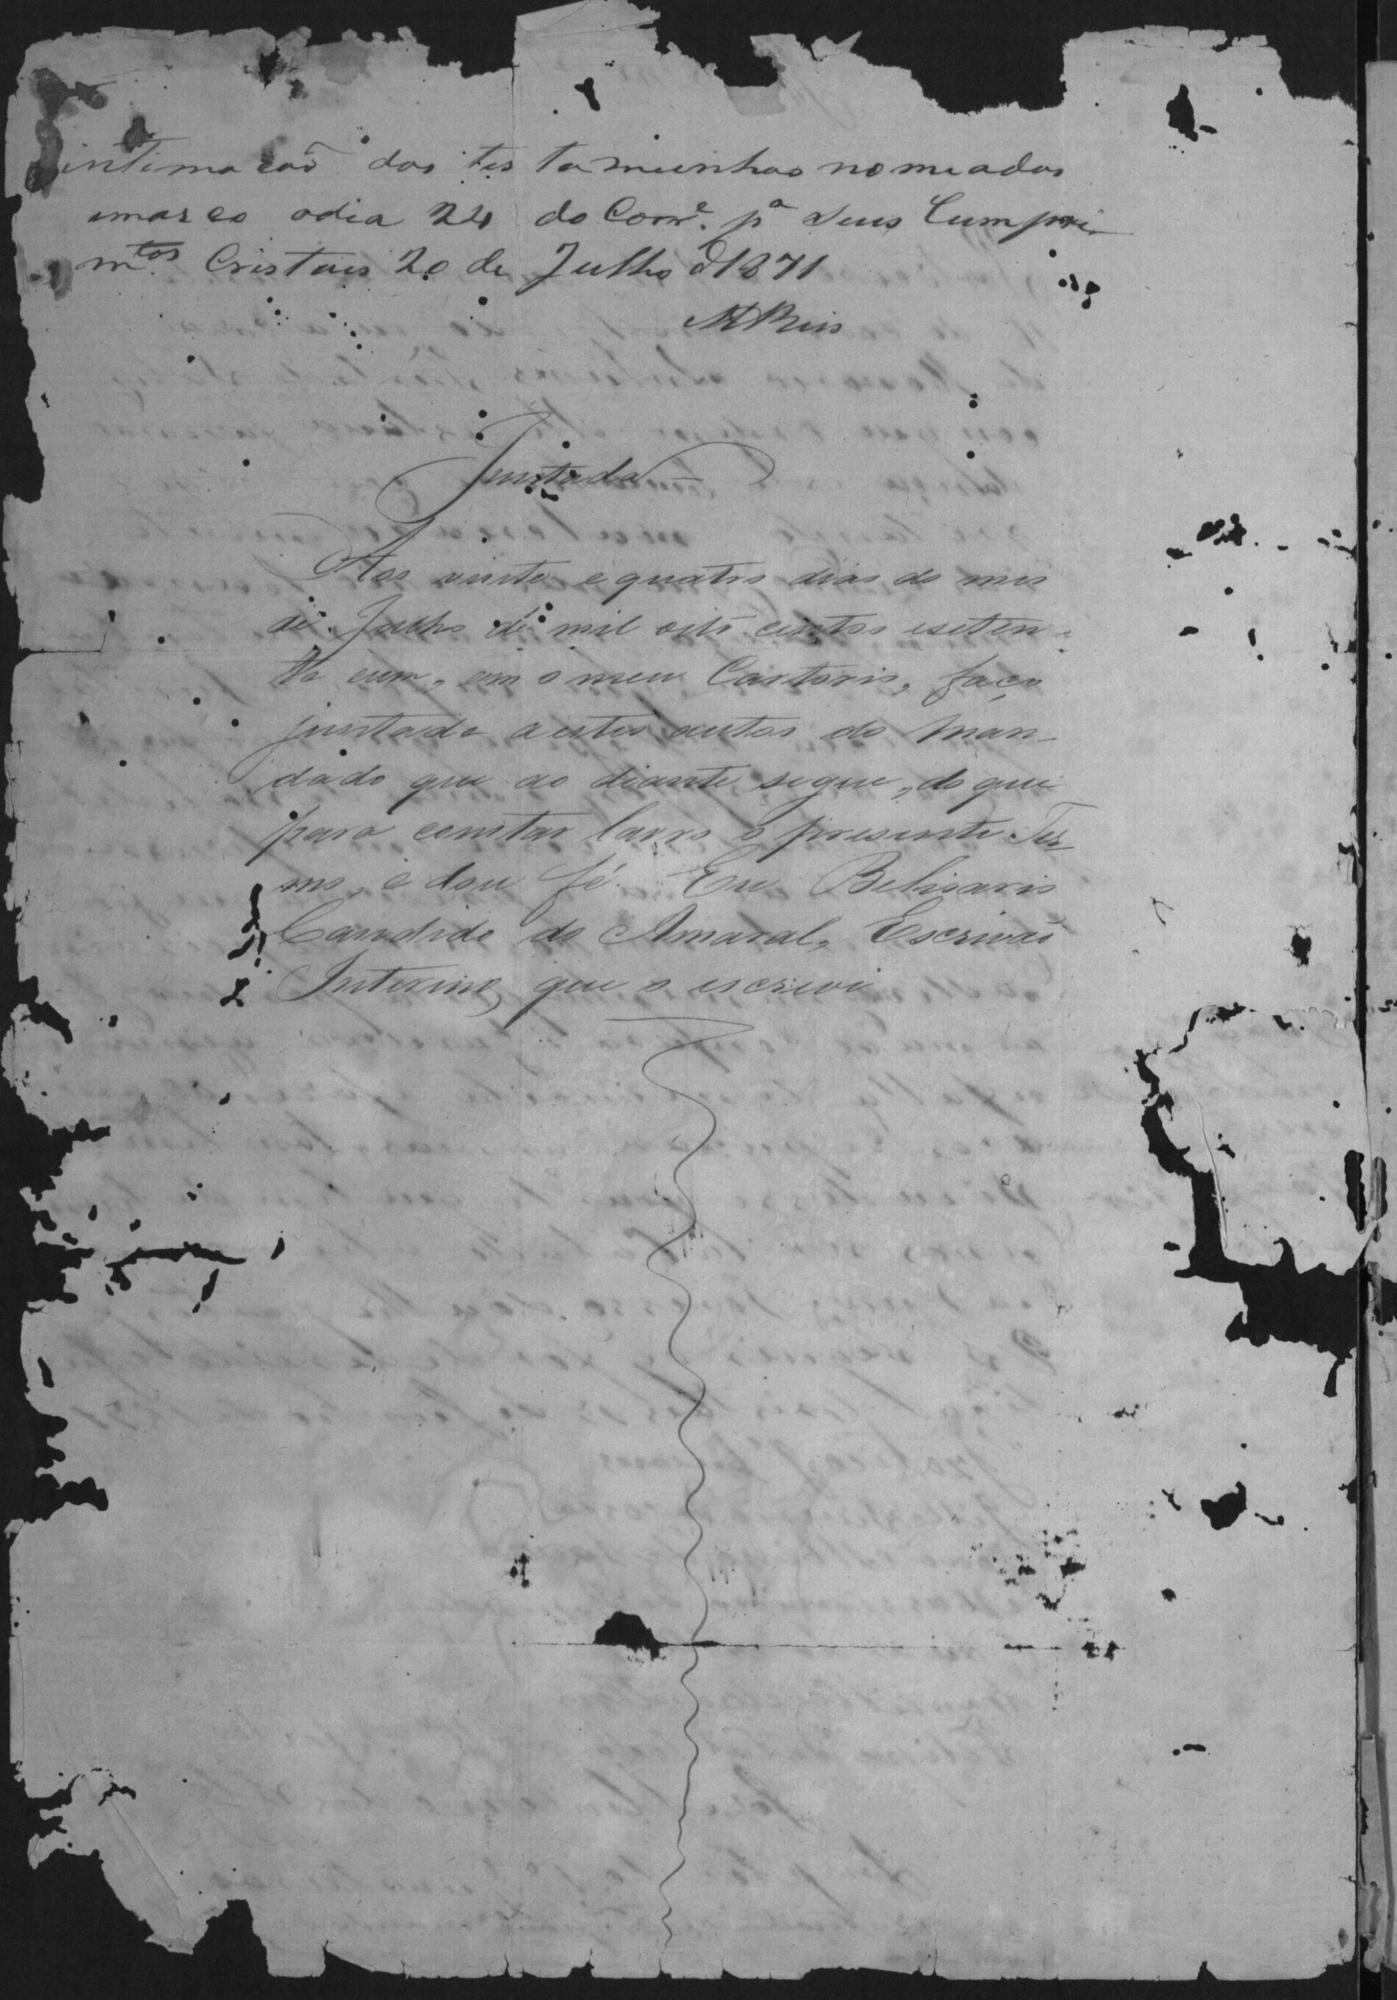 intimacaõ das testamunhas nomeadas
emarco odia 24 do Corr.e p.a seus Cumpri
m.tos Cristais 20 de Julho d1871
Juntada
Aos vinte e quatro dias do mes
de Julho de mil oito centos eseten-
ta eum, em o meu Cartorio, faço
juntada a estes autos do Man-
dado que ao diante segue, do que
para constar lavro o presente Ter-
mo, e dou fé. Eu Belisario
Candido do Amaral, Escrivaõ
Interino, que o escrevi